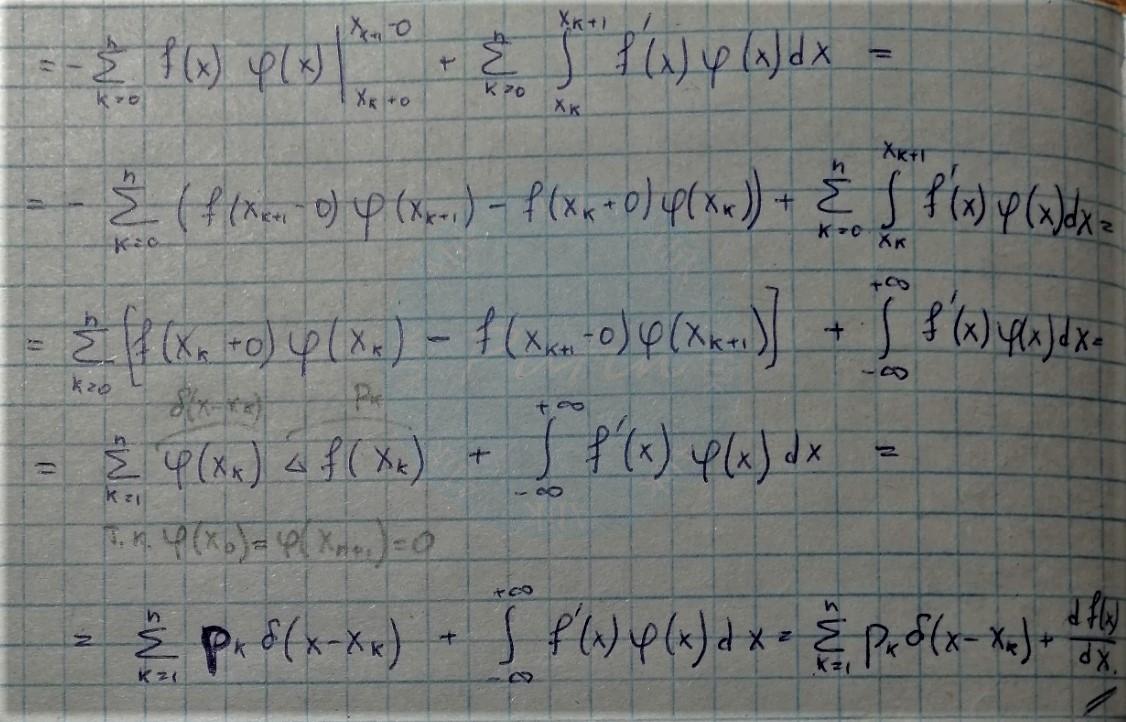 = - ∑_{k=0}^{n} f(x) φ(x) |_{x_k+0}^{x_{k+1}-0} + ∑_{k=0}^{n} ∫_{x_k}^{x_{k+1}} f'(x) φ(x) dx =
= - ∑_{k=0}^{n} (f(x_{k+1}-0) φ(x_{k+1}) - f(x_k+0) φ(x_k)) + ∑_{k=0}^{n} ∫_{x_k}^{x_{k+1}} f'(x) φ(x) dx =
= ∑_{k=0}^{n} [f(x_k+0) φ(x_k) - f(x_{k+1}-0) φ(x_{k+1})] + ∫_{-∞}^{+∞} f'(x) φ(x) dx =
δ(x-x_k) p_k
= ∑_{k=1}^{n} φ(x_k) Δ f(x_k) + ∫_{-∞}^{+∞} f'(x) φ(x) dx =
т.к. φ(x_0) = φ(x_{n+1}) = 0
= ∑_{k=1}^{n} p_k δ(x-x_k) + ∫_{-∞}^{+∞} f'(x) φ(x) dx = ∑_{k=1}^{n} p_k δ(x-x_k) + \frac{d f(x)}{dx}